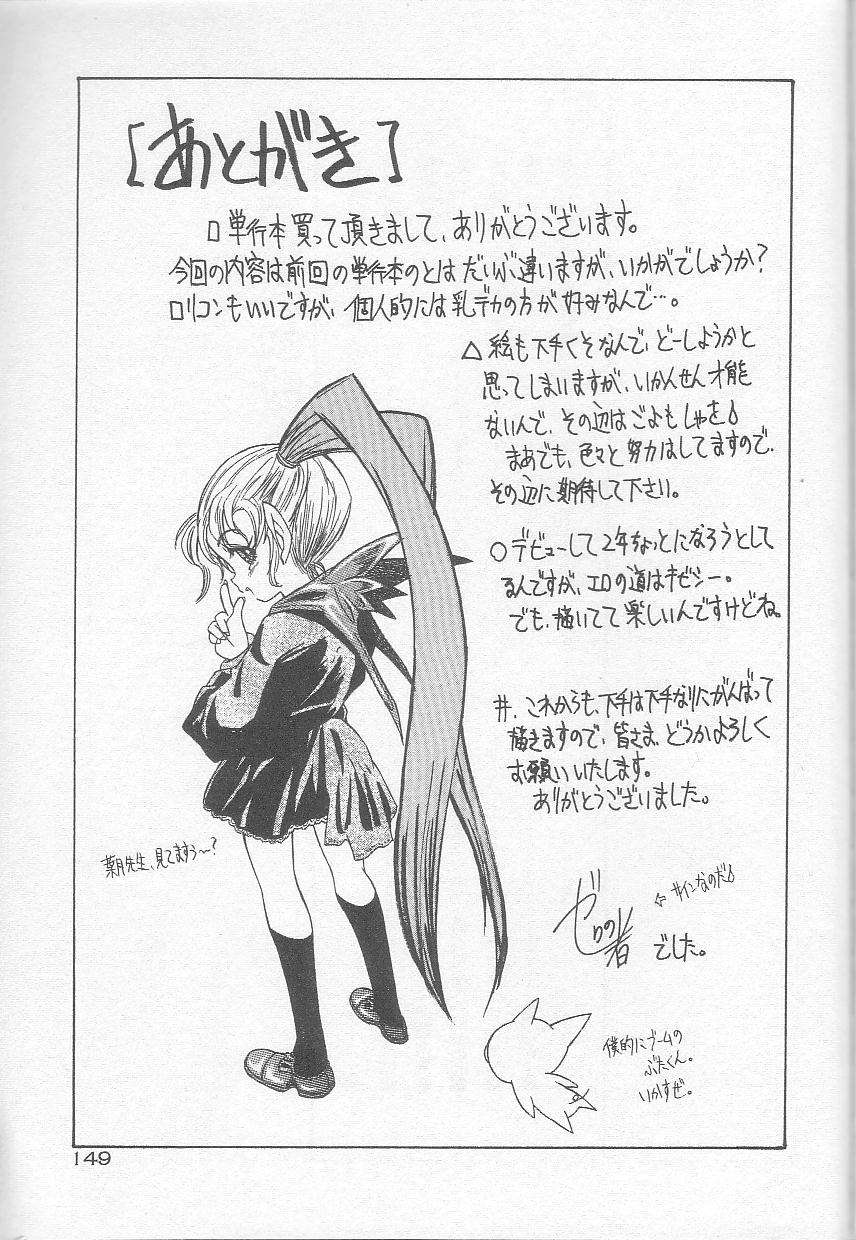 [あとがき]
□単行本買って頂きまして、ありがとうございます。
今回の内容は前回の単行本のとはだいぶ違いますが、いかがでしょうか?
ロリコンもいいですが、個人的には乳デカの方が好みなんで…。
△絵も下手くそなんで、どーしようかと
思ってしまいますが、いかんせん才能
ないんで、その辺はごよもしゃを♪
まあでも、色々と努力はしてますので、
その辺に期待して下さい。
○デビューして2年ちょっとになろうとして
るんですが、エロの道はキビシー。
でも、描いてて楽しいんですけどね。
井.これからも、下手は下手なりにがんばって
描きますので、皆さま、どうかよろしく
お願いいたします。
ありがとうございました。
葉月先生、見てますぅ〜?
⇦サインなのだ♪
ゼロの者 でした。
僕的にブームの
ぶたくん。
いかすぜ。
149